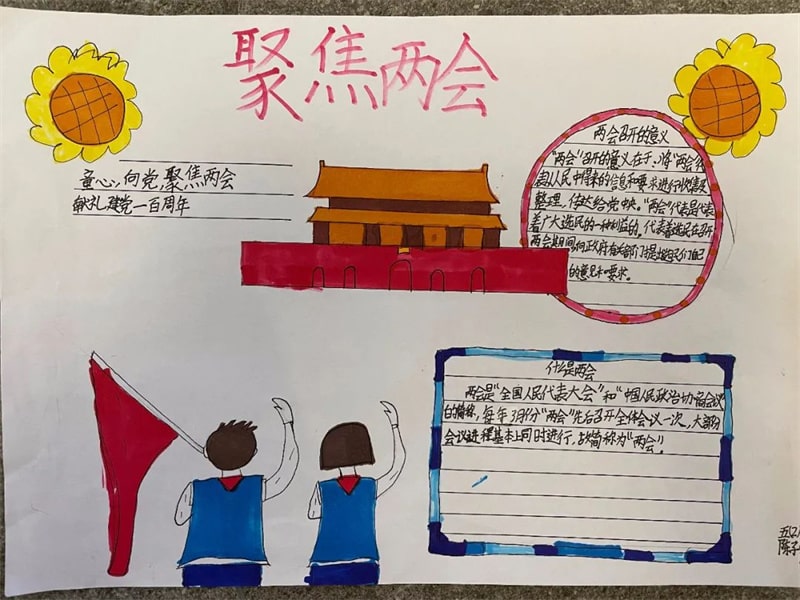 聚焦两会
童心向党,聚焦两会
献礼建党一百周年
两会召开的意义
"两会"召开的意义在于:将"两会"代
表从人民中得来的信息和要求进行收集及
整理,传达给党中央。"两会"代表是代表
着广大选民的一种利益的,代表着选民在召开
两会期间,向政府有关部门提出选民们自己
的意见和要求。
什么是两会
两会是"全国人民代表大会"和"中国人民政治协商会议"
的简称,每年3月份"两会"先后召开全体会议一次,大部份
会议进程基本上同时进行,故简称为"两会"。
陈子